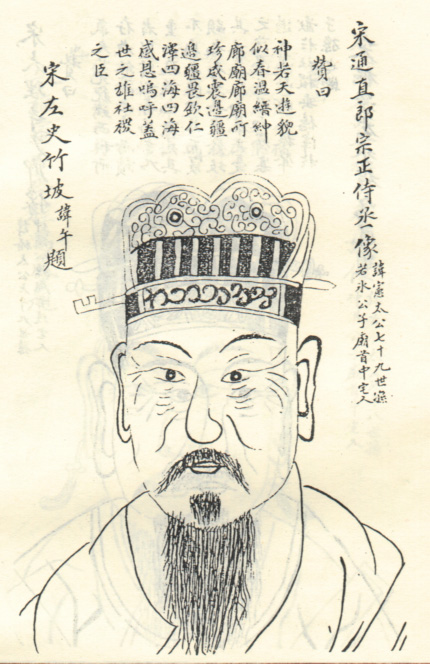 宋通直郎宗正侍丞像
諱憲太公七十九世
若水公子廟首中定人
贊曰
神若天遊貌
似春温縉紳
廊廟廊廟所
珍威震邊疆
邊疆畏欽仁
澤四海四海
感恩嗚呼蓋
世之雄社稷
之臣
宋左史竹坡諱午題